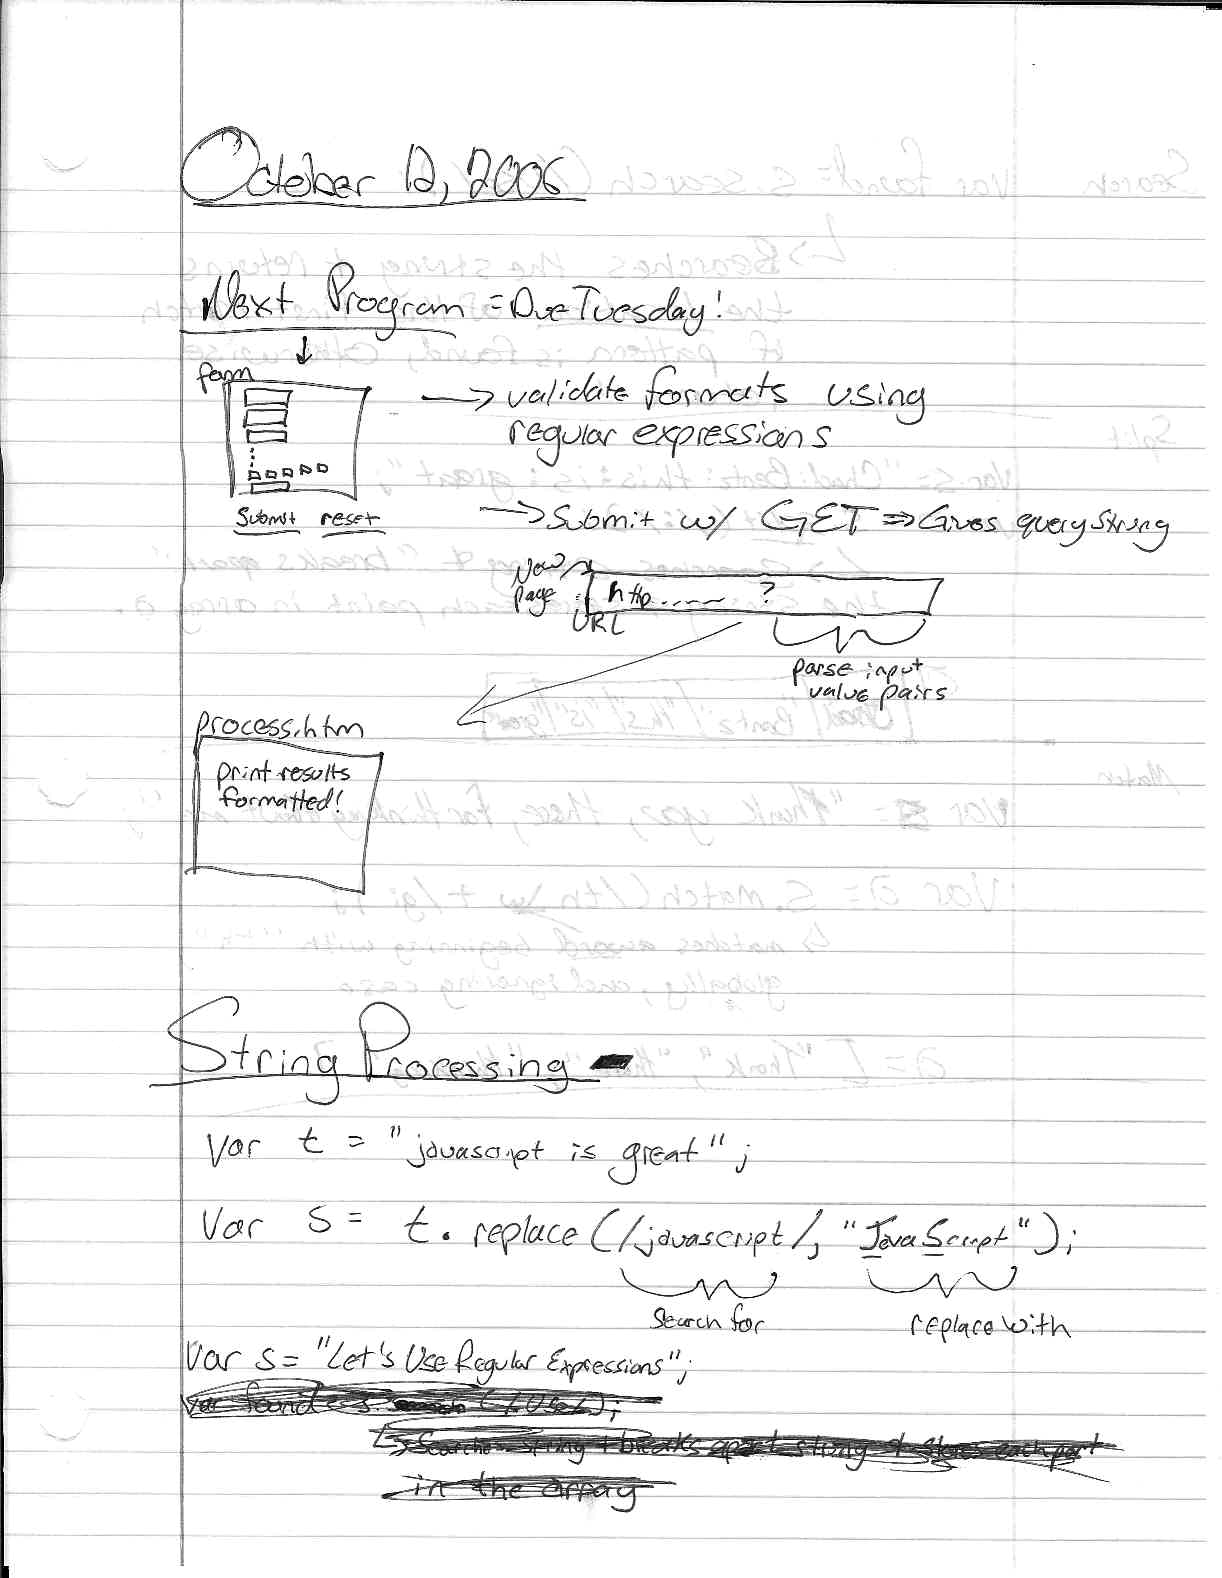 October 12, 2006
Next Program = Due Tuesday!
form
→ validate formats using
regular expressions
submit reset
→ Submit w/ GET ⇒ Gives query string
New
page
http...... ?
URL
parse input
value pairs
process.htm
print results
formatted!
String Processing
Var t = "javascript is great";
Var s = t.replace(/javascript/, "JavaScript");
search for
replace with
Var s = "Let's Use Regular Expressions";
var found = s. (/Use/);
↳ Searches string + breaks apart string + stores each part
in the array